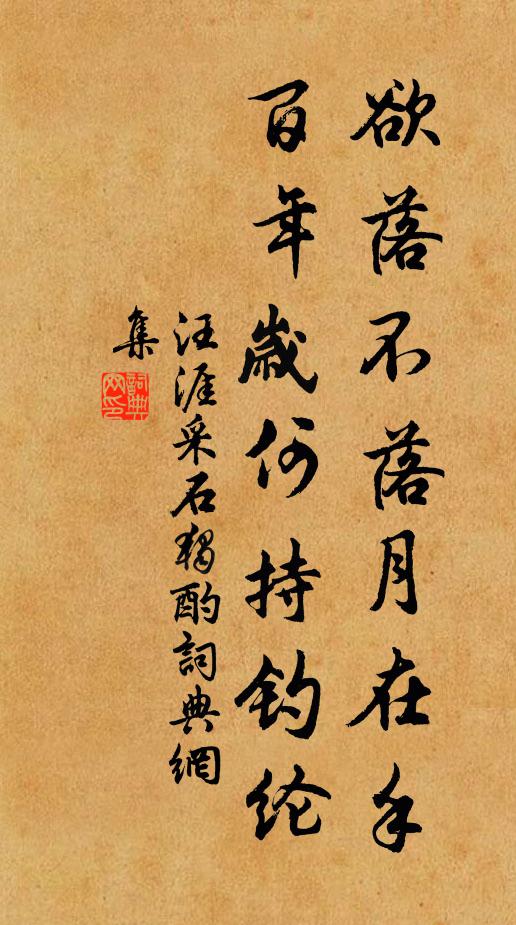 欲落不落月在手
百年歲何持钓纶
汪涯采石独酌詞典網
集
詞典网印